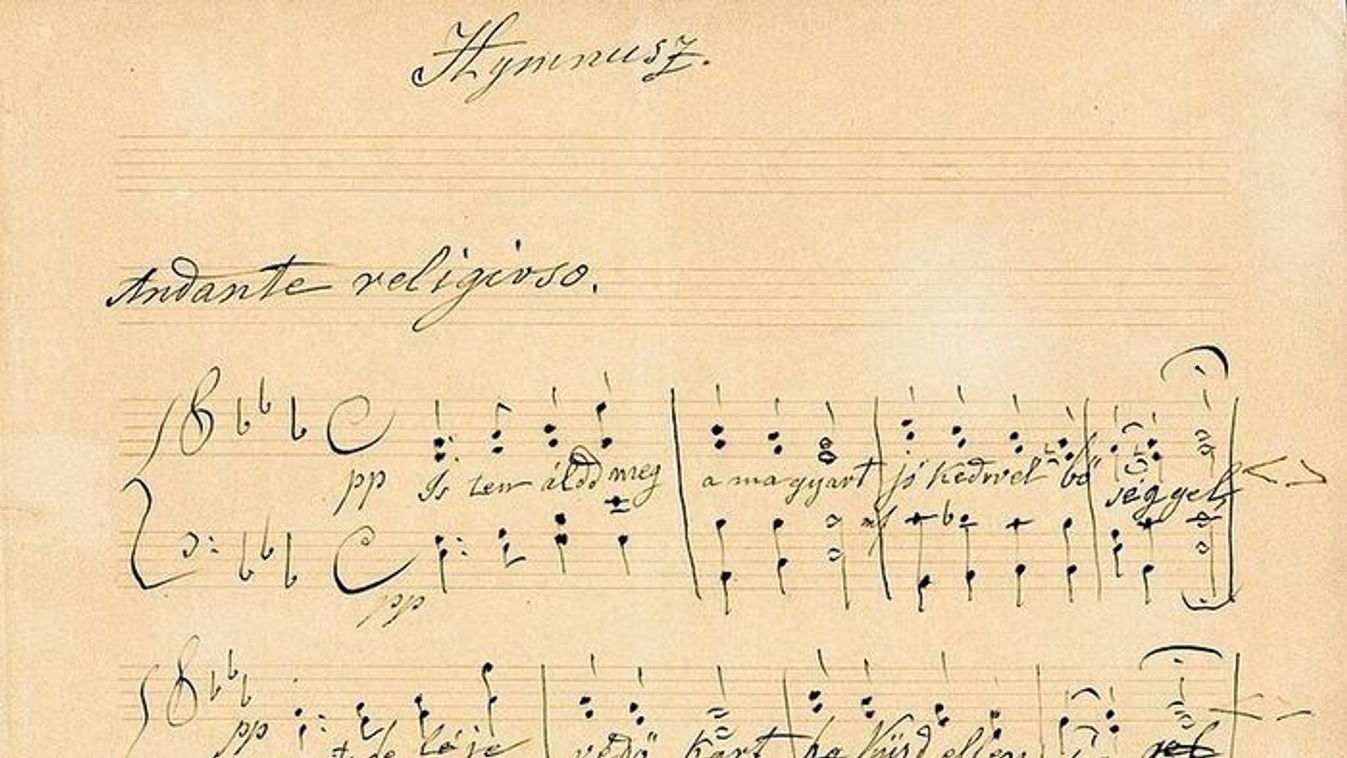 Hymnusz.
Andante religioso.
pp Is ten áldd meg a magyart jó kedvvel bő séggel
mf
pp
pp
védő kart ha küzd ellen